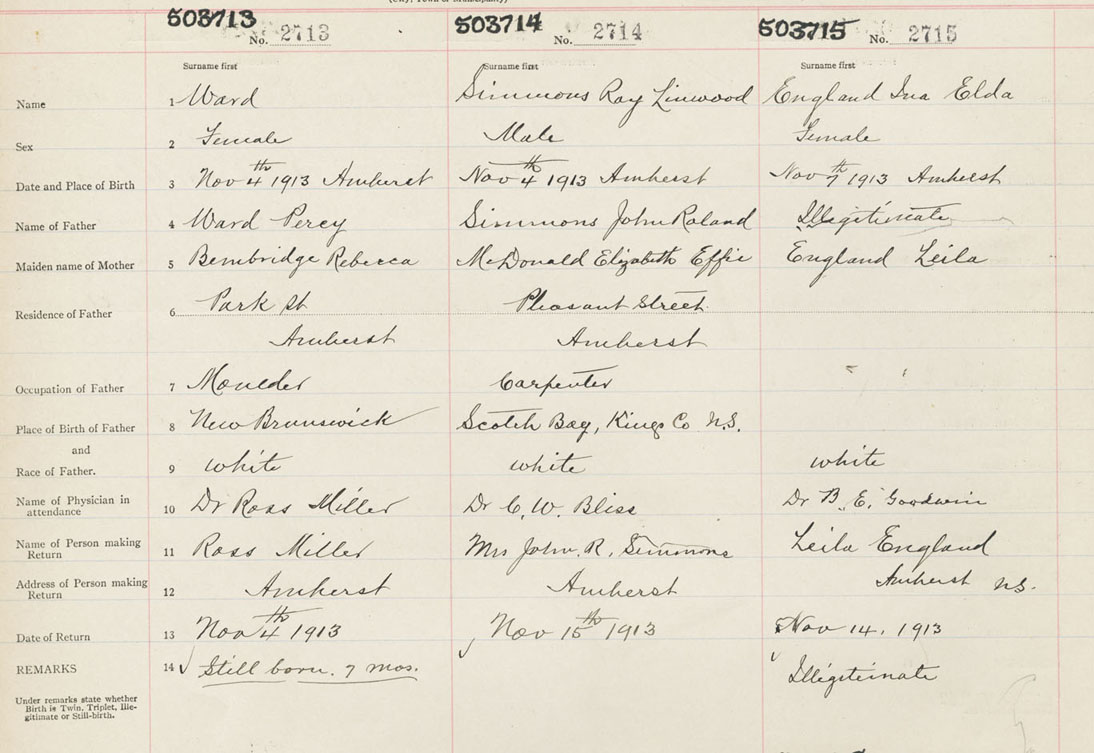 (City, Town or Municipality)
503713 No. 2713 503714 No. 2714 503715 No. 2715
Surname first Surname first Surname first
Name 1 Ward Simmons Ray Linwood England Ina Elda
Sex 2 Female Male Female
Date and Place of Birth 3 Nov 4th 1913 Amherst Nov 4th 1913 Amherst Nov 7th 1913 Amherst
Name of Father 4 Ward Percy Simmons John Roland Illegitimate
Maiden name of Mother 5 Bembridge Rebecca McDonald Elizabeth Effie England Leila
Residence of Father 6 Park St Pleasant Street
Amherst Amherst
Occupation of Father 7 Moulder Carpenter
Place of Birth of Father 8 New Brunswick Scotch Bay, Kings Co N.S.
and
Race of Father. 9 white white white
Name of Physician in attendance 10 Dr Ross Miller Dr C. W. Bliss Dr B. E. Goodwin
Name of Person making Return 11 Ross Miller Mrs John. R. Simmons Leila England
Address of Person making Return 12 Amherst Amherst Amherst N.S.
Date of Return 13 Nov 4th 1913 Nov 15th 1913 Nov 14. 1913
REMARKS 14 Still born. 7 mos. Illigiteinate
Under remarks state whether
Birth is Twin, Triplet, Ille-
gitimate or Still-birth.